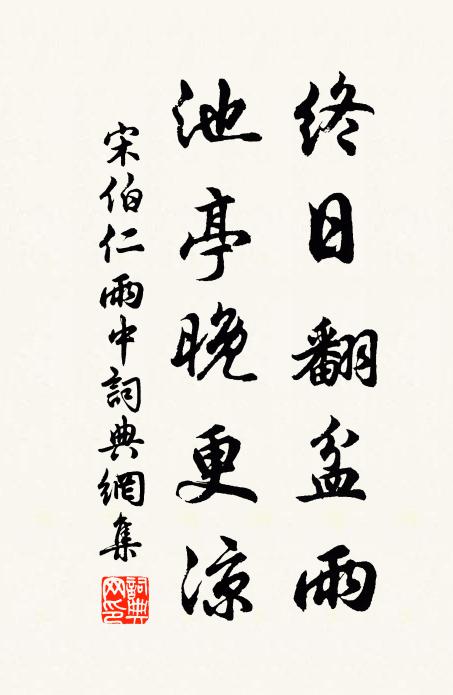 終日翻盆雨
池亭晚更涼
宋伯仁雨中詞典網集
詞典
网印